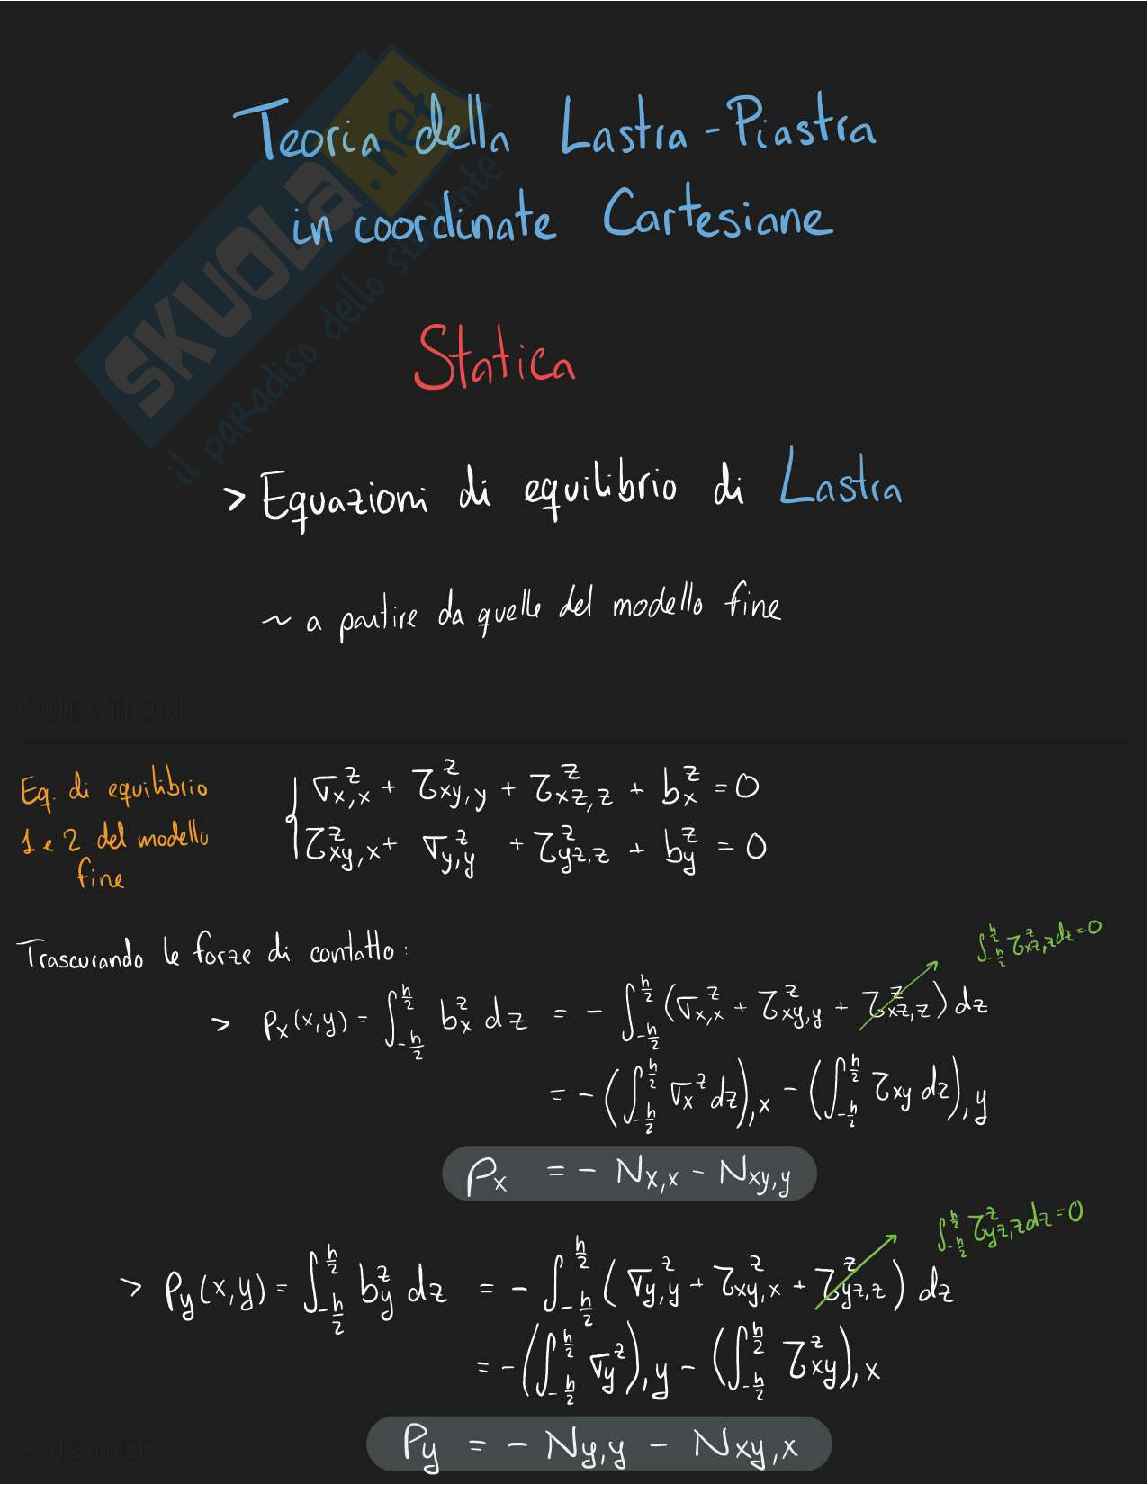 SKUOLA.net
il paradiso dello studente
Teoria della Lastra-Piastra
in coordinate Cartesiane
Statica
> Equazioni di equilibrio di Lastra
~ a partire da quelle del modello fine
Eq. di equilibrio
1 e 2 del modello
fine
{ σ^z_{x,x} + τ^z_{xy,y} + τ^z_{xz,z} + b^z_x = 0
τ^z_{xy,x} + σ^z_{y,y} + τ^z_{yz,z} + b^z_y = 0
Trascurando le forze di contatto:
∫_{-h/2}^{h/2} τ^z_{xz,z} dz = 0
> p_x(x,y) = ∫_{-h/2}^{h/2} b^z_x dz = - ∫_{-h/2}^{h/2} (σ^z_{x,x} + τ^z_{xy,y} + τ^z_{xz,z}) dz
= - (∫_{-h/2}^{h/2} σ_x^z dz)_{,x} - (∫_{-h/2}^{h/2} τ_{xy} dz)_{,y}
p_x = - N_{x,x} - N_{xy,y}
∫_{-h/2}^{h/2} τ^z_{yz,z} dz = 0
> p_y(x,y) = ∫_{-h/2}^{h/2} b^z_y dz = - ∫_{-h/2}^{h/2} (σ^z_{y,y} + τ^z_{xy,x} + τ^z_{yz,z}) dz
= - (∫_{-h/2}^{h/2} σ_y^z)_{,y} - (∫_{-h/2}^{h/2} τ^z_{xy})_{,x}
p_y = - N_{y,y} - N_{xy,x}